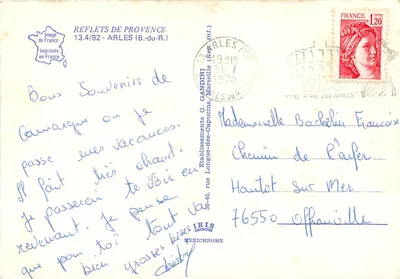 Image
de France
Imprimée
en France
REFLETS DE PROVENCE
13.4/82 - ARLES (B.-du-R.)
Bons Souvenirs de
Camargue où je
passe mes vacances.
Il fait très chaud.
je passerai te voir en
revenant. je pense
que pour toi tout va
bien grosses bises
Etablissements G. GANDINI
38-40, rue Longue-des-Capucins, Marseille
IRIS
MEXICHROME
13 ARLES
19H15
1978
FRANCE
1,20
Mademoiselle Bachelier Françoise
Chemin de
Hautot Sur Mer
76550 Offranville